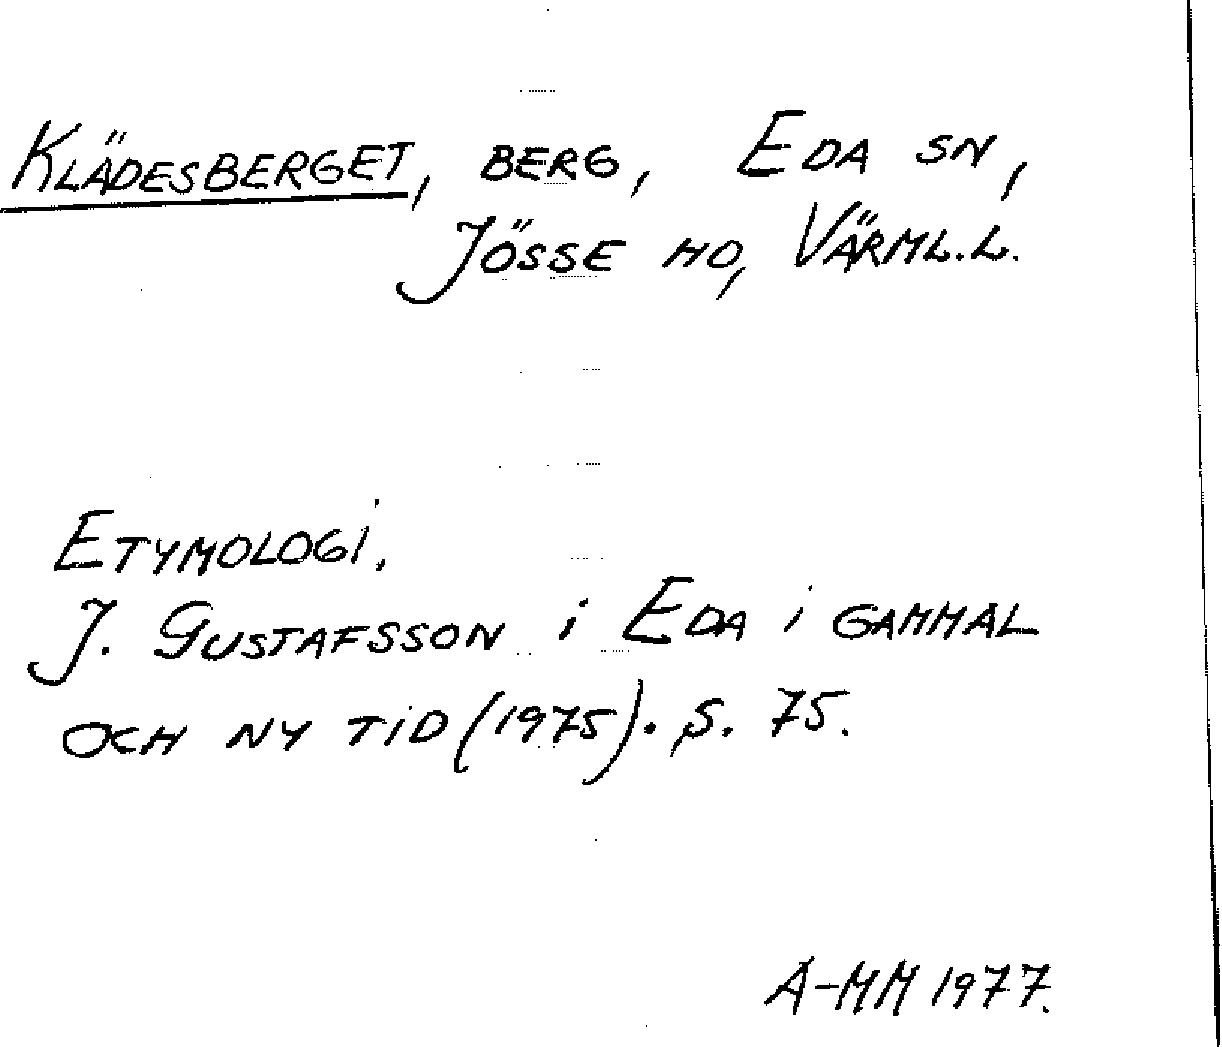 KLÄDESBERGET, BERG, EDA SN,
JÖSSE HD, VÄRML.L.
ETYMOLOGI.
J. GUSTAFSSON i EDA i GAMMAL
OCH NY TiD (1975). S. 75.
A-MM 1977.